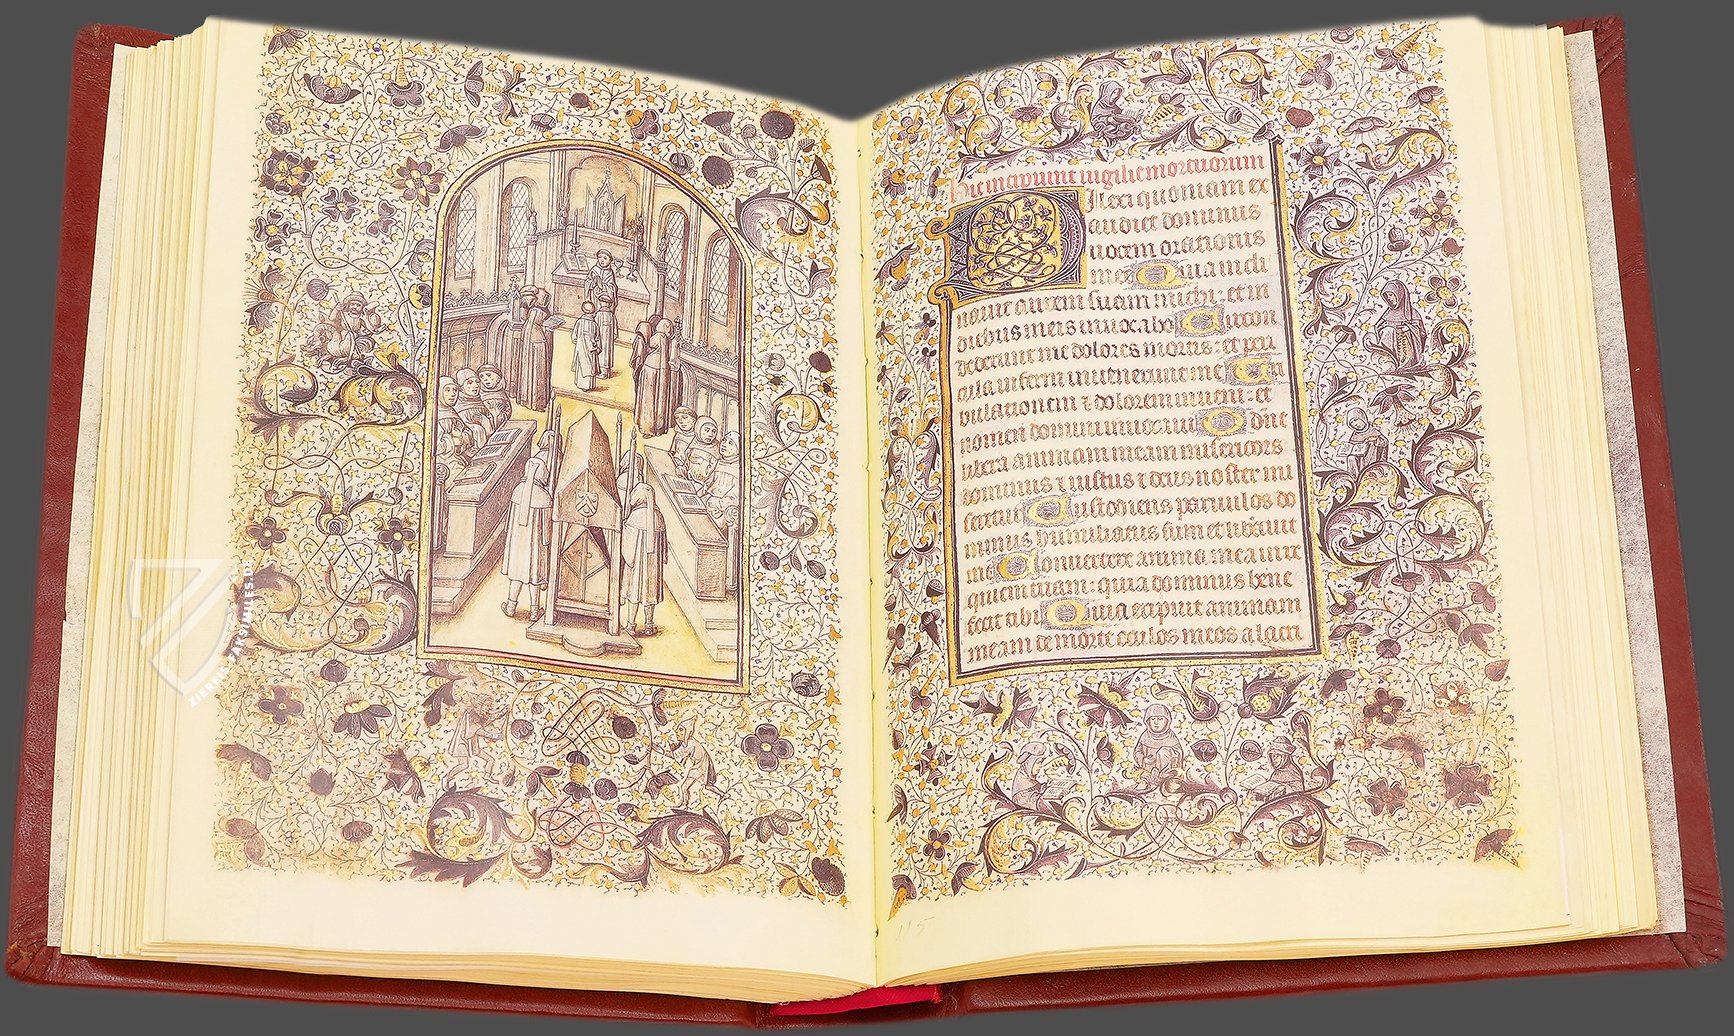 ZIEREIS FACSIMILES.DE
Hic incipiunt uigilie mortuorum
Dilexi quoniam ex
audiet dominus
uocem orationis
mee Quia incli
nauit aurem suam michi: et in
diebus meis inuocabo Circon
dederunt me dolores mortis: et peri
cula inferni inuenerunt me
bulationem ⁊ dolorem inueni: et
nomen domini inuocaui O dn̄e
libera animam meam misericors
dominus ⁊ iustus ⁊ deus noster mi
Custodiens paruulos do
minus humiliatus sum et liberauit
me Conuertere anima mea in re
quiem tuam: quia dominus bene
fecit tibi Quia eripuit animam
meam de morte oculos meos a lacri
115